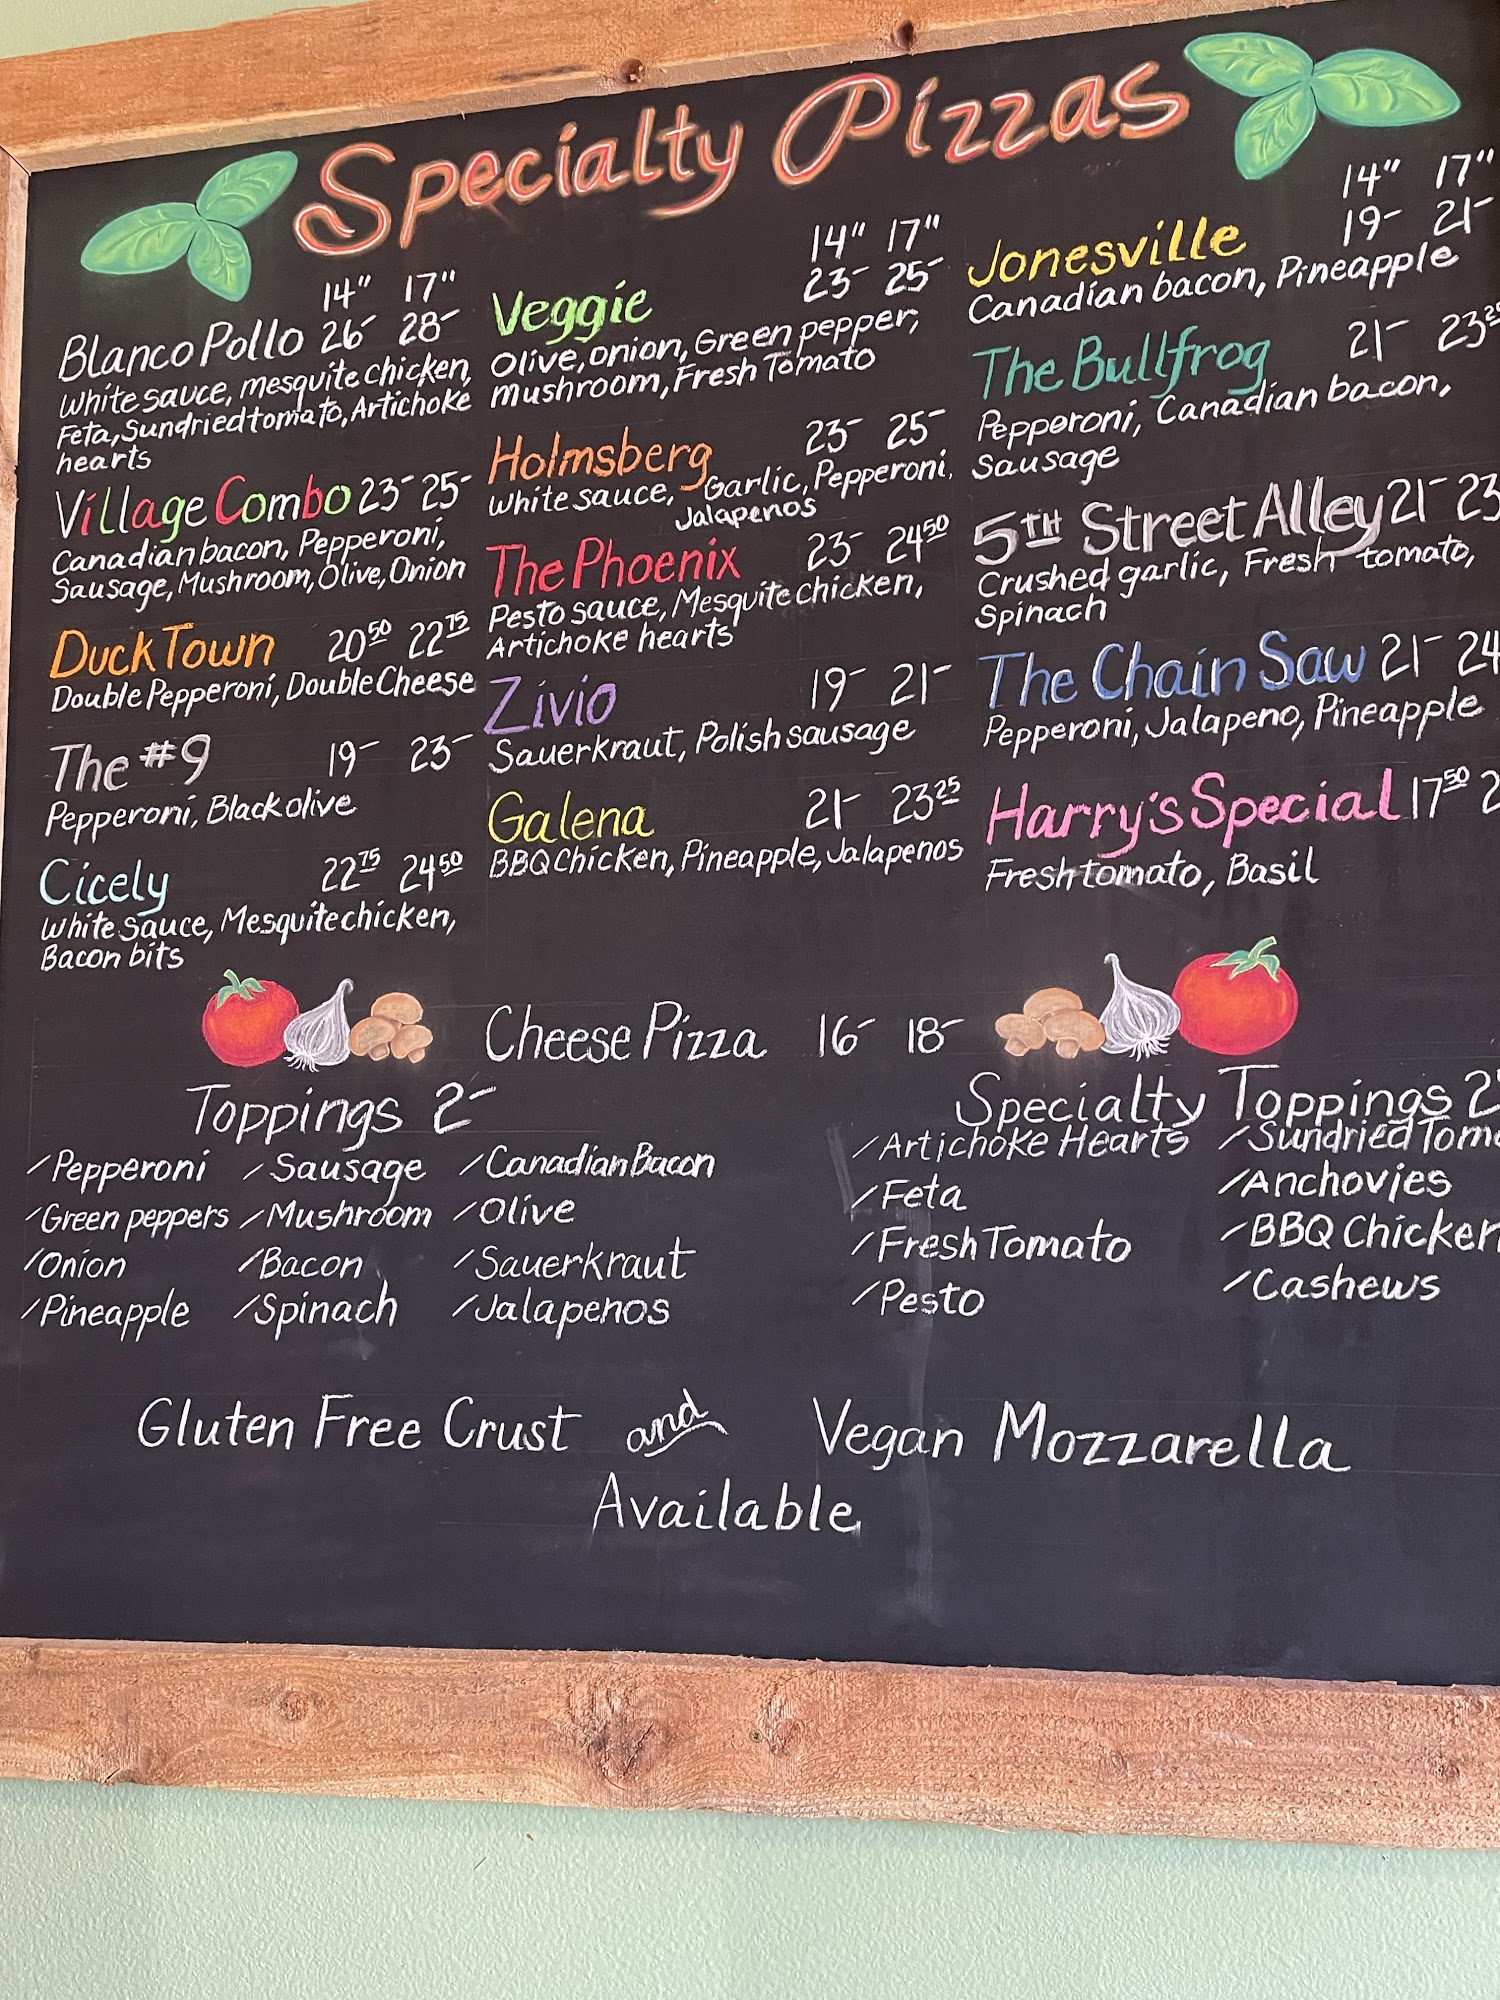 Specialty Pizzas
14" 17"
Blanco Pollo 26- 28-
White sauce, mesquite chicken,
Feta, Sundried tomato, Artichoke
hearts
Village Combo 23- 25-
Canadian bacon, Pepperoni,
Sausage, Mushroom, Olive, Onion
Duck Town 20 50 22 75
Double Pepperoni, Double Cheese
The #9 19- 23-
Pepperoni, Black olive
Cicely 22 75 24 50
White sauce, Mesquite chicken,
Bacon bits
14" 17"
Veggie 23- 25-
Olive, onion, Green pepper,
mushroom, Fresh Tomato
Holmsberg 23- 25-
White sauce, Garlic, Pepperoni,
Jalapenos
The Phoenix 23- 24 50
Pesto sauce, Mesquite chicken,
Artichoke hearts
Zivio 19- 21-
Sauerkraut, Polish sausage
Galena 21- 23 25
BBQ Chicken, Pineapple, Jalapenos
14" 17"
Jonesville 19- 21-
Canadian bacon, Pineapple
The Bullfrog 21- 23 25
Pepperoni, Canadian bacon,
Sausage
5TH Street Alley 21- 23
Crushed garlic, Fresh tomato,
Spinach
The Chain Saw 21- 24
Pepperoni, Jalapeno, Pineapple
Harry's Special 17 50
Fresh tomato, Basil
Cheese Pizza 16- 18-
Toppings 2-
/Pepperoni /Sausage /Canadian Bacon
/Green peppers /Mushroom /Olive
/Onion /Bacon /Sauerkraut
/Pineapple /Spinach /Jalapenos
Specialty Toppings 2
/Artichoke Hearts /Sundried Tom
/Feta /Anchovies
/Fresh Tomato /BBQ Chicken
/Pesto /Cashews
Gluten Free Crust and Vegan Mozzarella
Available